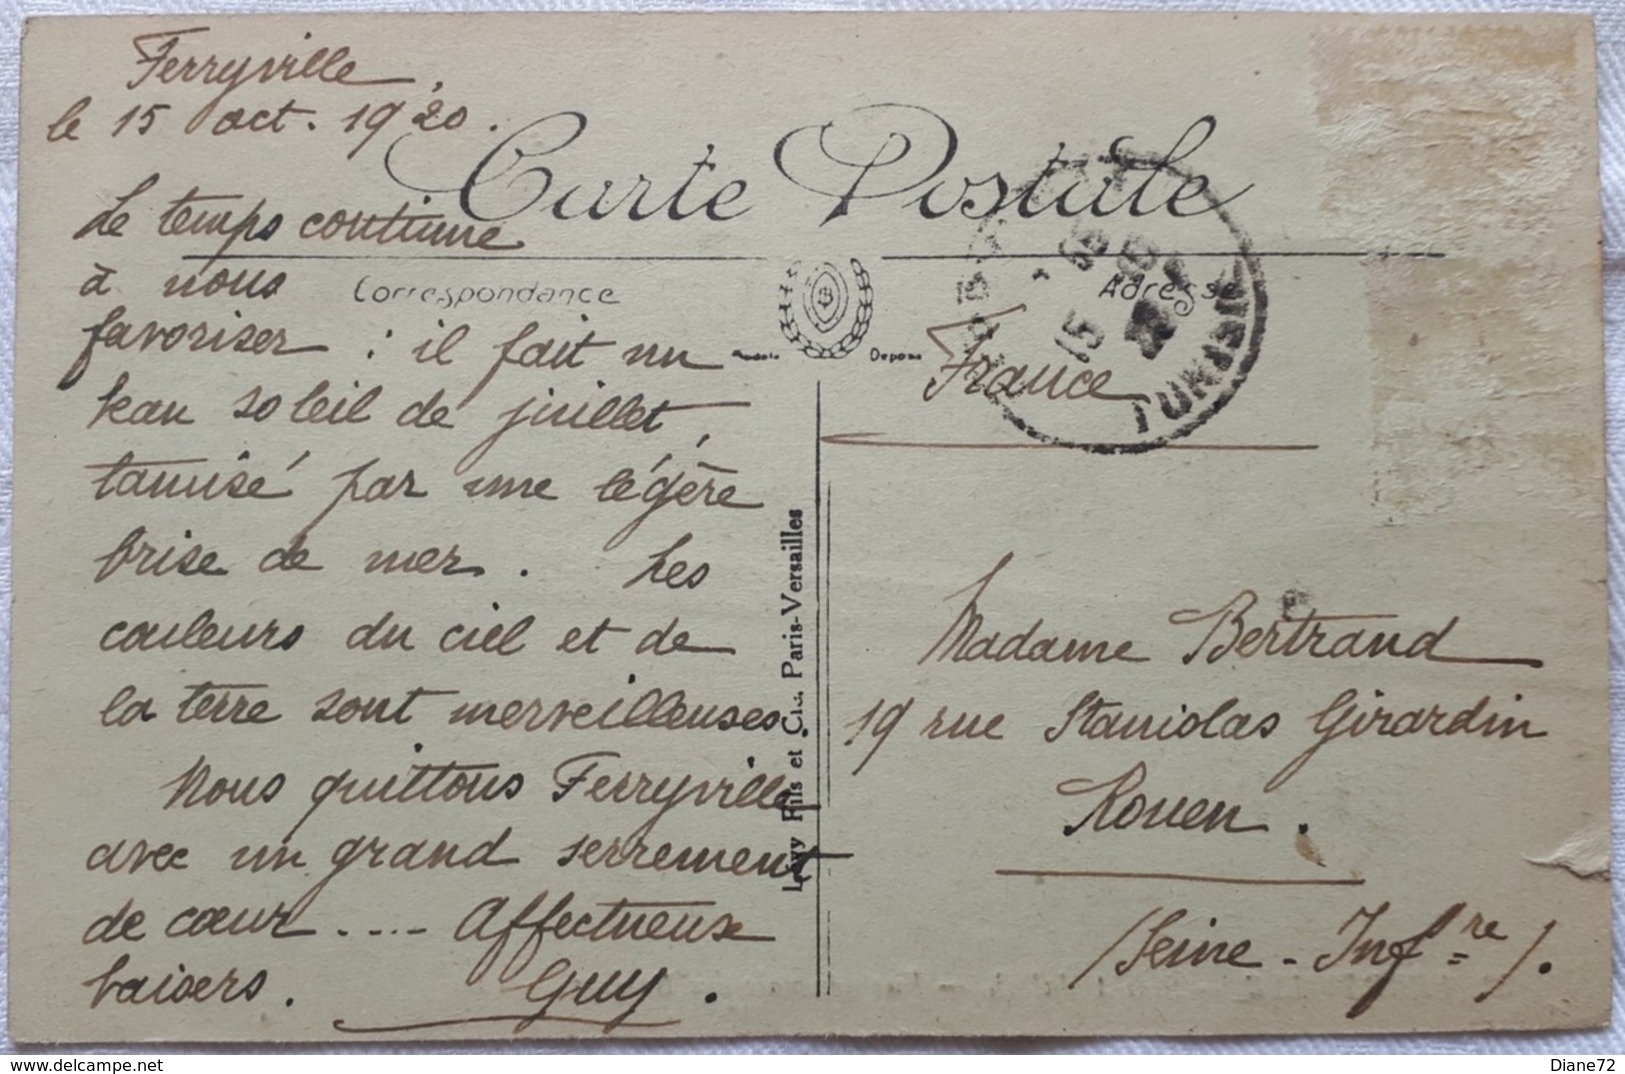 Ferryville,
le 15 oct. 1920.
Carte Postale
Le temps continue
à nous
Correspondance
Adresse
favoriser : il fait un
beau soleil de juillet,
tamisé par une légère
brise de mer. Les
couleurs du ciel et de
la terre sont merveilleuses.
Nous quittons Ferryville
avec un grand serrement
de cœur..... Affectueux
baisers. Guy.
Lévy Fils et Cie. Paris-Versailles
France
15
TUNISIE
Madame Bertrand
19 rue Stanislas Girardin
Rouen.
(Seine-Infre).
Diane72